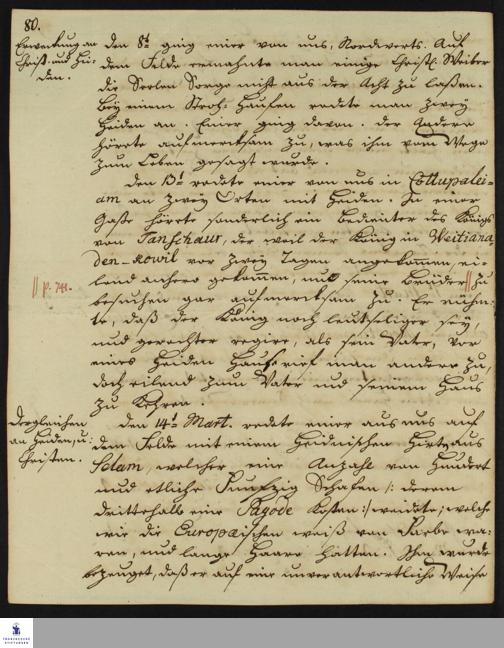 80.
Erweckung an
Christ- und Hei-
den.
den 8t ging einer von uns, Nordwerts. Auf
dem Felde ermahnte man einige Christl. Weiber
die Seelen Sorge nicht aus der Acht zu laßen.
bey einem Stroh-Haufen redete man zwey
Heiden an. Einer ging davon. der Andere
hörete aufmerksam zu, was ihm vom Wege
zum Leben gesagt wurde.
Den 13t redete einer von uns in Cottupalei-
am an zwey Orten mit Heiden. In einer
Gaße hörete sonderlich ein bedienter des Königs
von Tanschaur, der weil der König in Weitiana
den-kowil vor zwey Tagen angekommen, ei-
lend anhero gekommen, und seine Brüder || zu
|| p. 741.
besuchen gar aufmerksam zu. Er rühm-
te, daß der König noch leutseliger sey,
und gerechter regire, als sein Vater, vor
eines Heiden Hauß rief man andere zu,
doch eilend zum Vater und seinem Haus
zu Kehren.
Dergleichen
an Heiden, u:
Christen.
den 14t Mart. redete einer aus uns auf
dem Felde mit einem Heidnischen Hirten aus
Selam, welcher eine Anzahl von Hundert
und etliche Funfzig Schafen /: derem
drittehalb eine Pagode kosten :/ weidete; welche
wie die Europaeischen weiß von Farbe wa-
ren, und lange Haare hatten. Ihm wurde
bezeuget, daß er auf eine unverantwortliche Weise
FRANCKESCHE
STIFTUNGEN